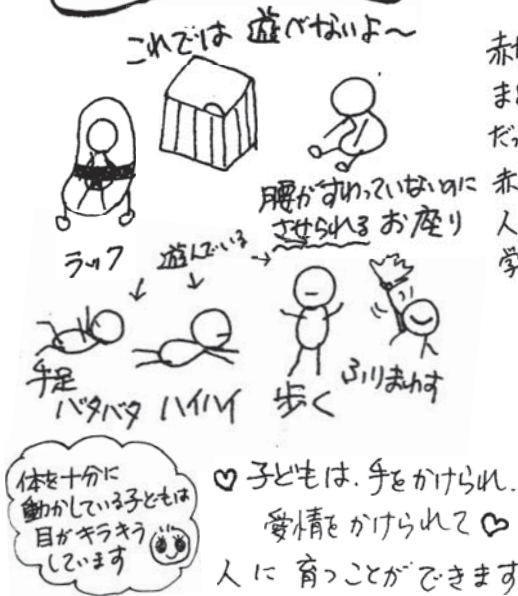 これでは 遊べないよ〜
腰がすわっていないのに
させられる お座り
ラック
遊んでいる
手足
バタバタ
ハイハイ
歩く
ふりまわす
体を十分に
動かしている子どもは
目がキラキラ
しています
♡子どもは、手をかけられ、
愛情をかけられて♡
人に 育つことができます
赤
ま
だっ
赤
人
学